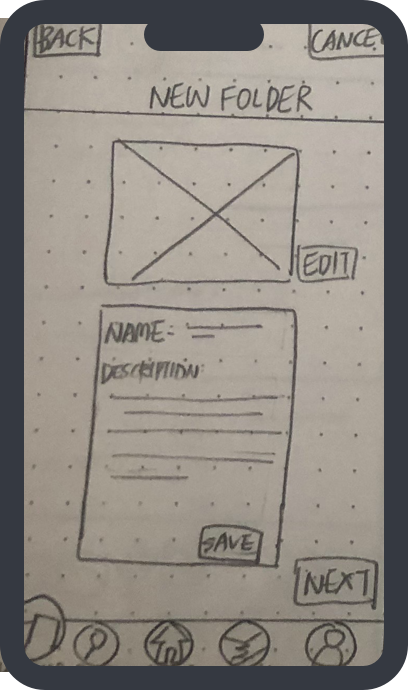 BACK
CANCE
NEW FOLDER
EDIT
NAME:
DESCRIPTION
SAVE
NEXT